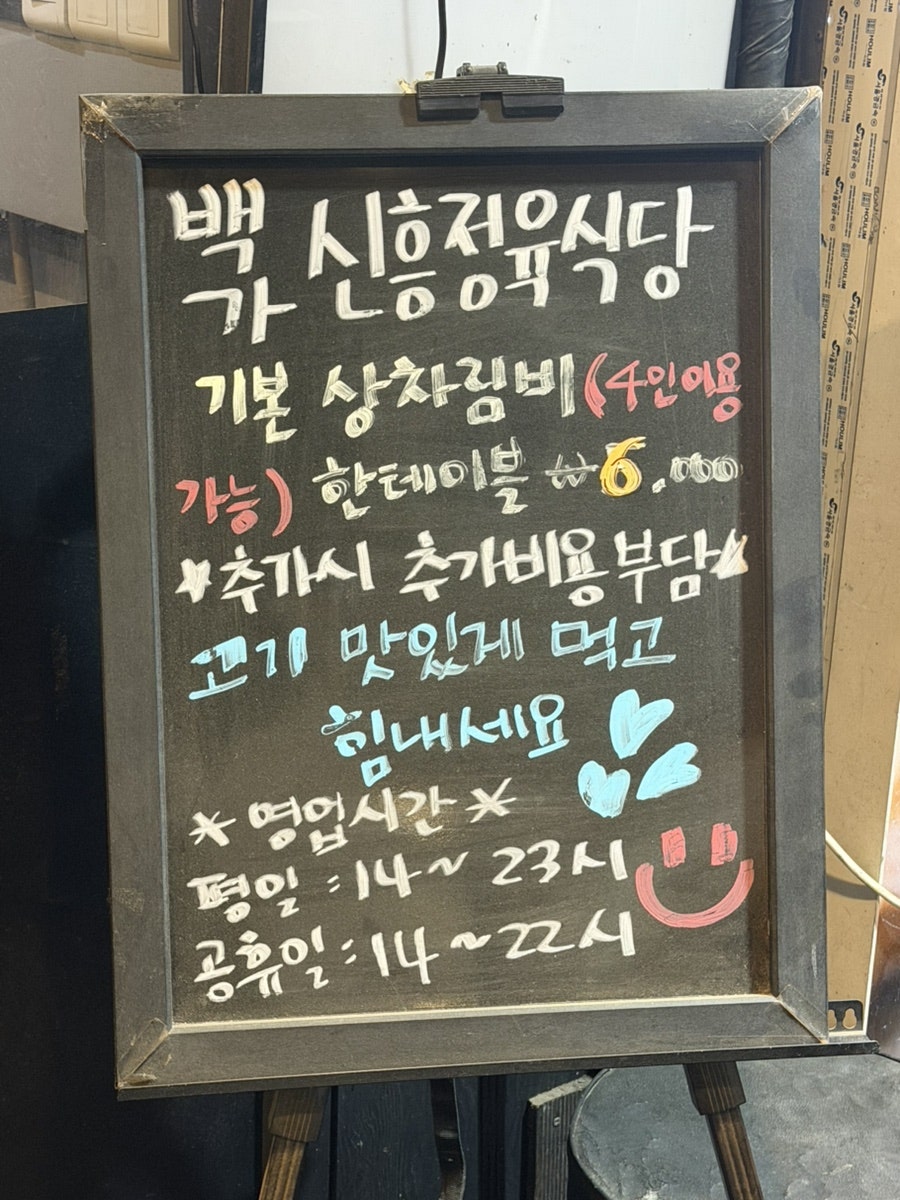 백가 신흥정육식당
기본 상차림비 (4인이용
가능) 한테이블 ₩6.000
★추가시 추가비용부담★
고기 맛있게 먹고
힘내세요
* 영업시간 *
평일 : 14~ 23시
공휴일 : 14 ~22시
HOULIM